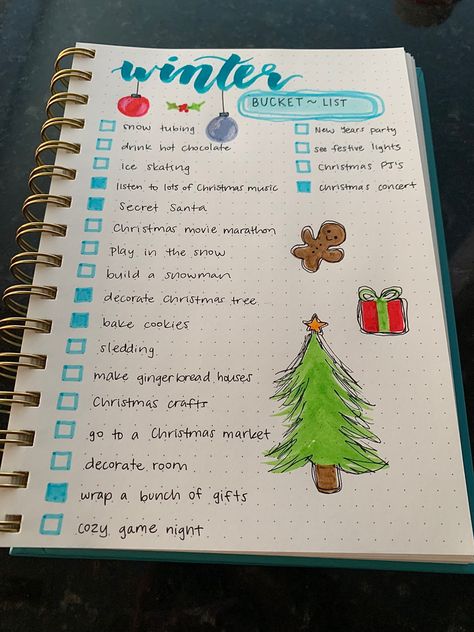 winter
BUCKET ~ LIST
snow tubing
drink hot chocolate
ice skating
listen to lots of Christmas music
Secret Santa
Christmas movie marathon
Play in the snow
build a snowman
decorate Christmas tree
bake cookies
sledding
make gingerbread houses
Christmas crafts
go to a Christmas market
decorate room
wrap a bunch of gifts
cozy game night
New Years party
see festive lights
Christmas PJ's
christmas concert